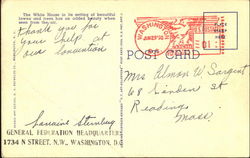 The White House in its setting of beautiful
and trees has an added beauty when
seen from the air.
thank you for
your help at
our convention
Lorraine
GENERAL FEDERATION HEADQUARTERS
1734 N STREET, N.W., WASHINGTON, D.C.
WASHINGTON
POST CARD
Mrs Almon W. Sargent
68 Linden St
Reading
Mass.